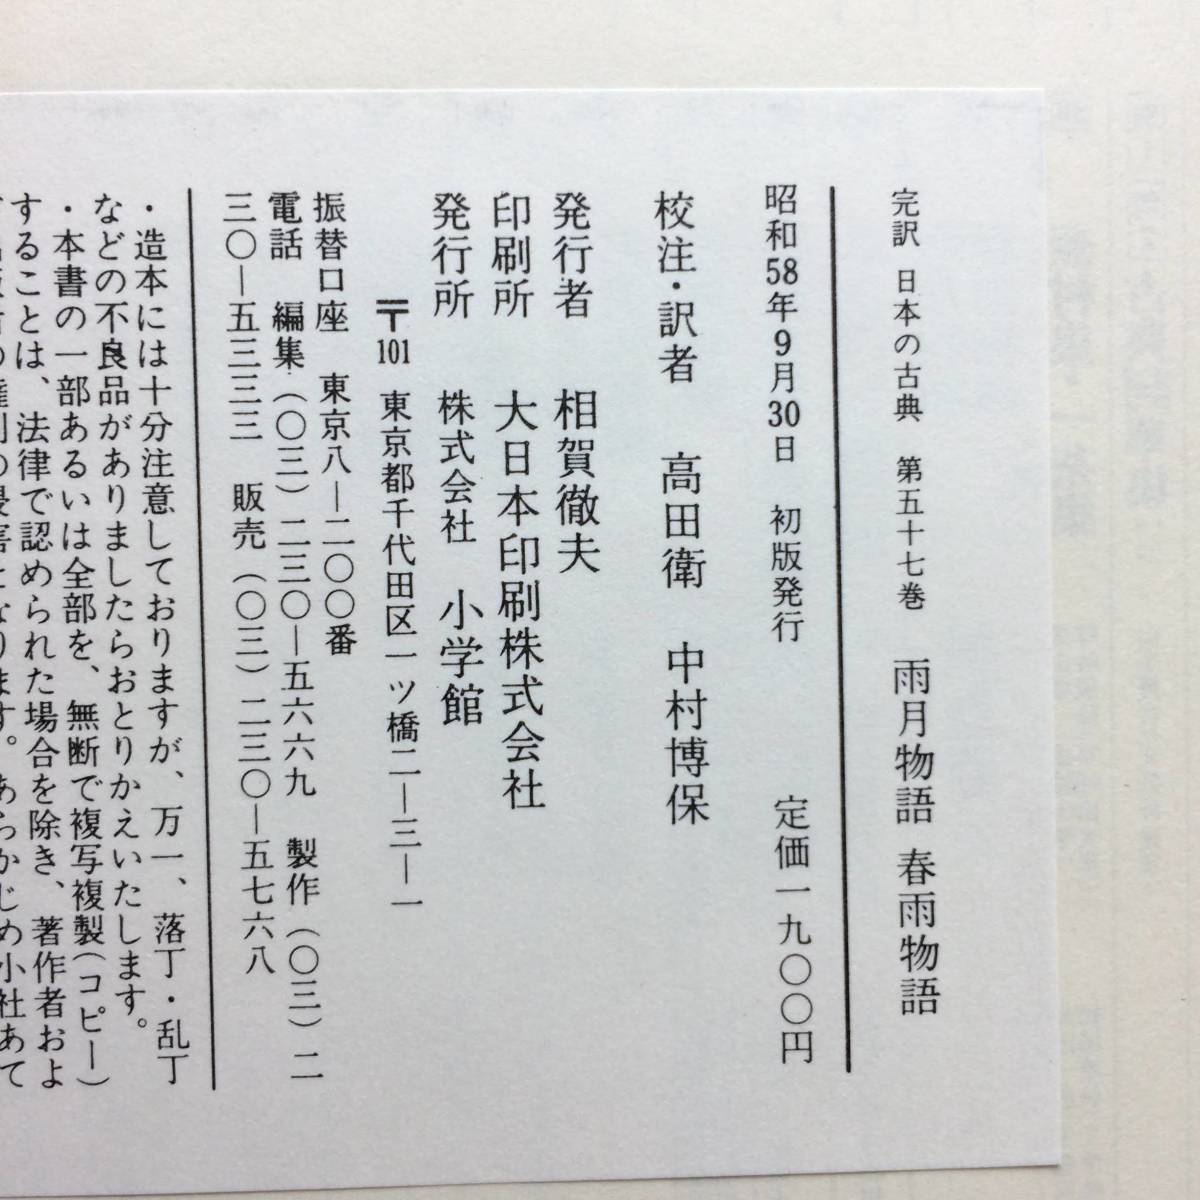 完訳 日本の古典 第五十七巻 雨月物語 春雨物語
昭和58年9月30日 初版発行 定価一九〇〇円
校注・訳者 高田衛 中村博保
発行者 相賀徹夫
印刷所 大日本印刷株式会社
発行所 株式会社 小学館
〒101 東京都千代田区一ツ橋二ー三ー一
振替口座 東京八ー二〇〇番
電話 編集(〇三)二三〇ー五六六九 製作(〇三)二
三〇ー五三三三 販売(〇三)二三〇ー五七六八
・造本には十分注意しておりますが、万一、落丁・乱丁
などの不良品がありましたらおとりかえいたします。
・本書の一部あるいは全部を、無断で複写複製(コピー)
することは、法律で認められた場合を除き、著作者およ
の侵害となります。あらかじめ小社あて